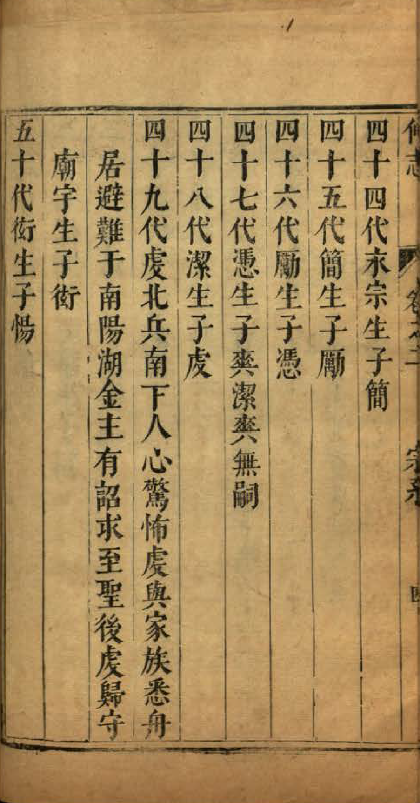 志 卷之二 宗系
四十四代永宗生子簡
四十五代簡生子勵
四十六代勵生子憑
四十七代憑生子奭潔奭無嗣
四十八代潔生子虔
四十九代虔北兵南下人心驚怖虔與家族悉舟
居避難于南陽湖金主有詔求至聖後虔歸守
廟宇生子衒
五十代衒生子惕